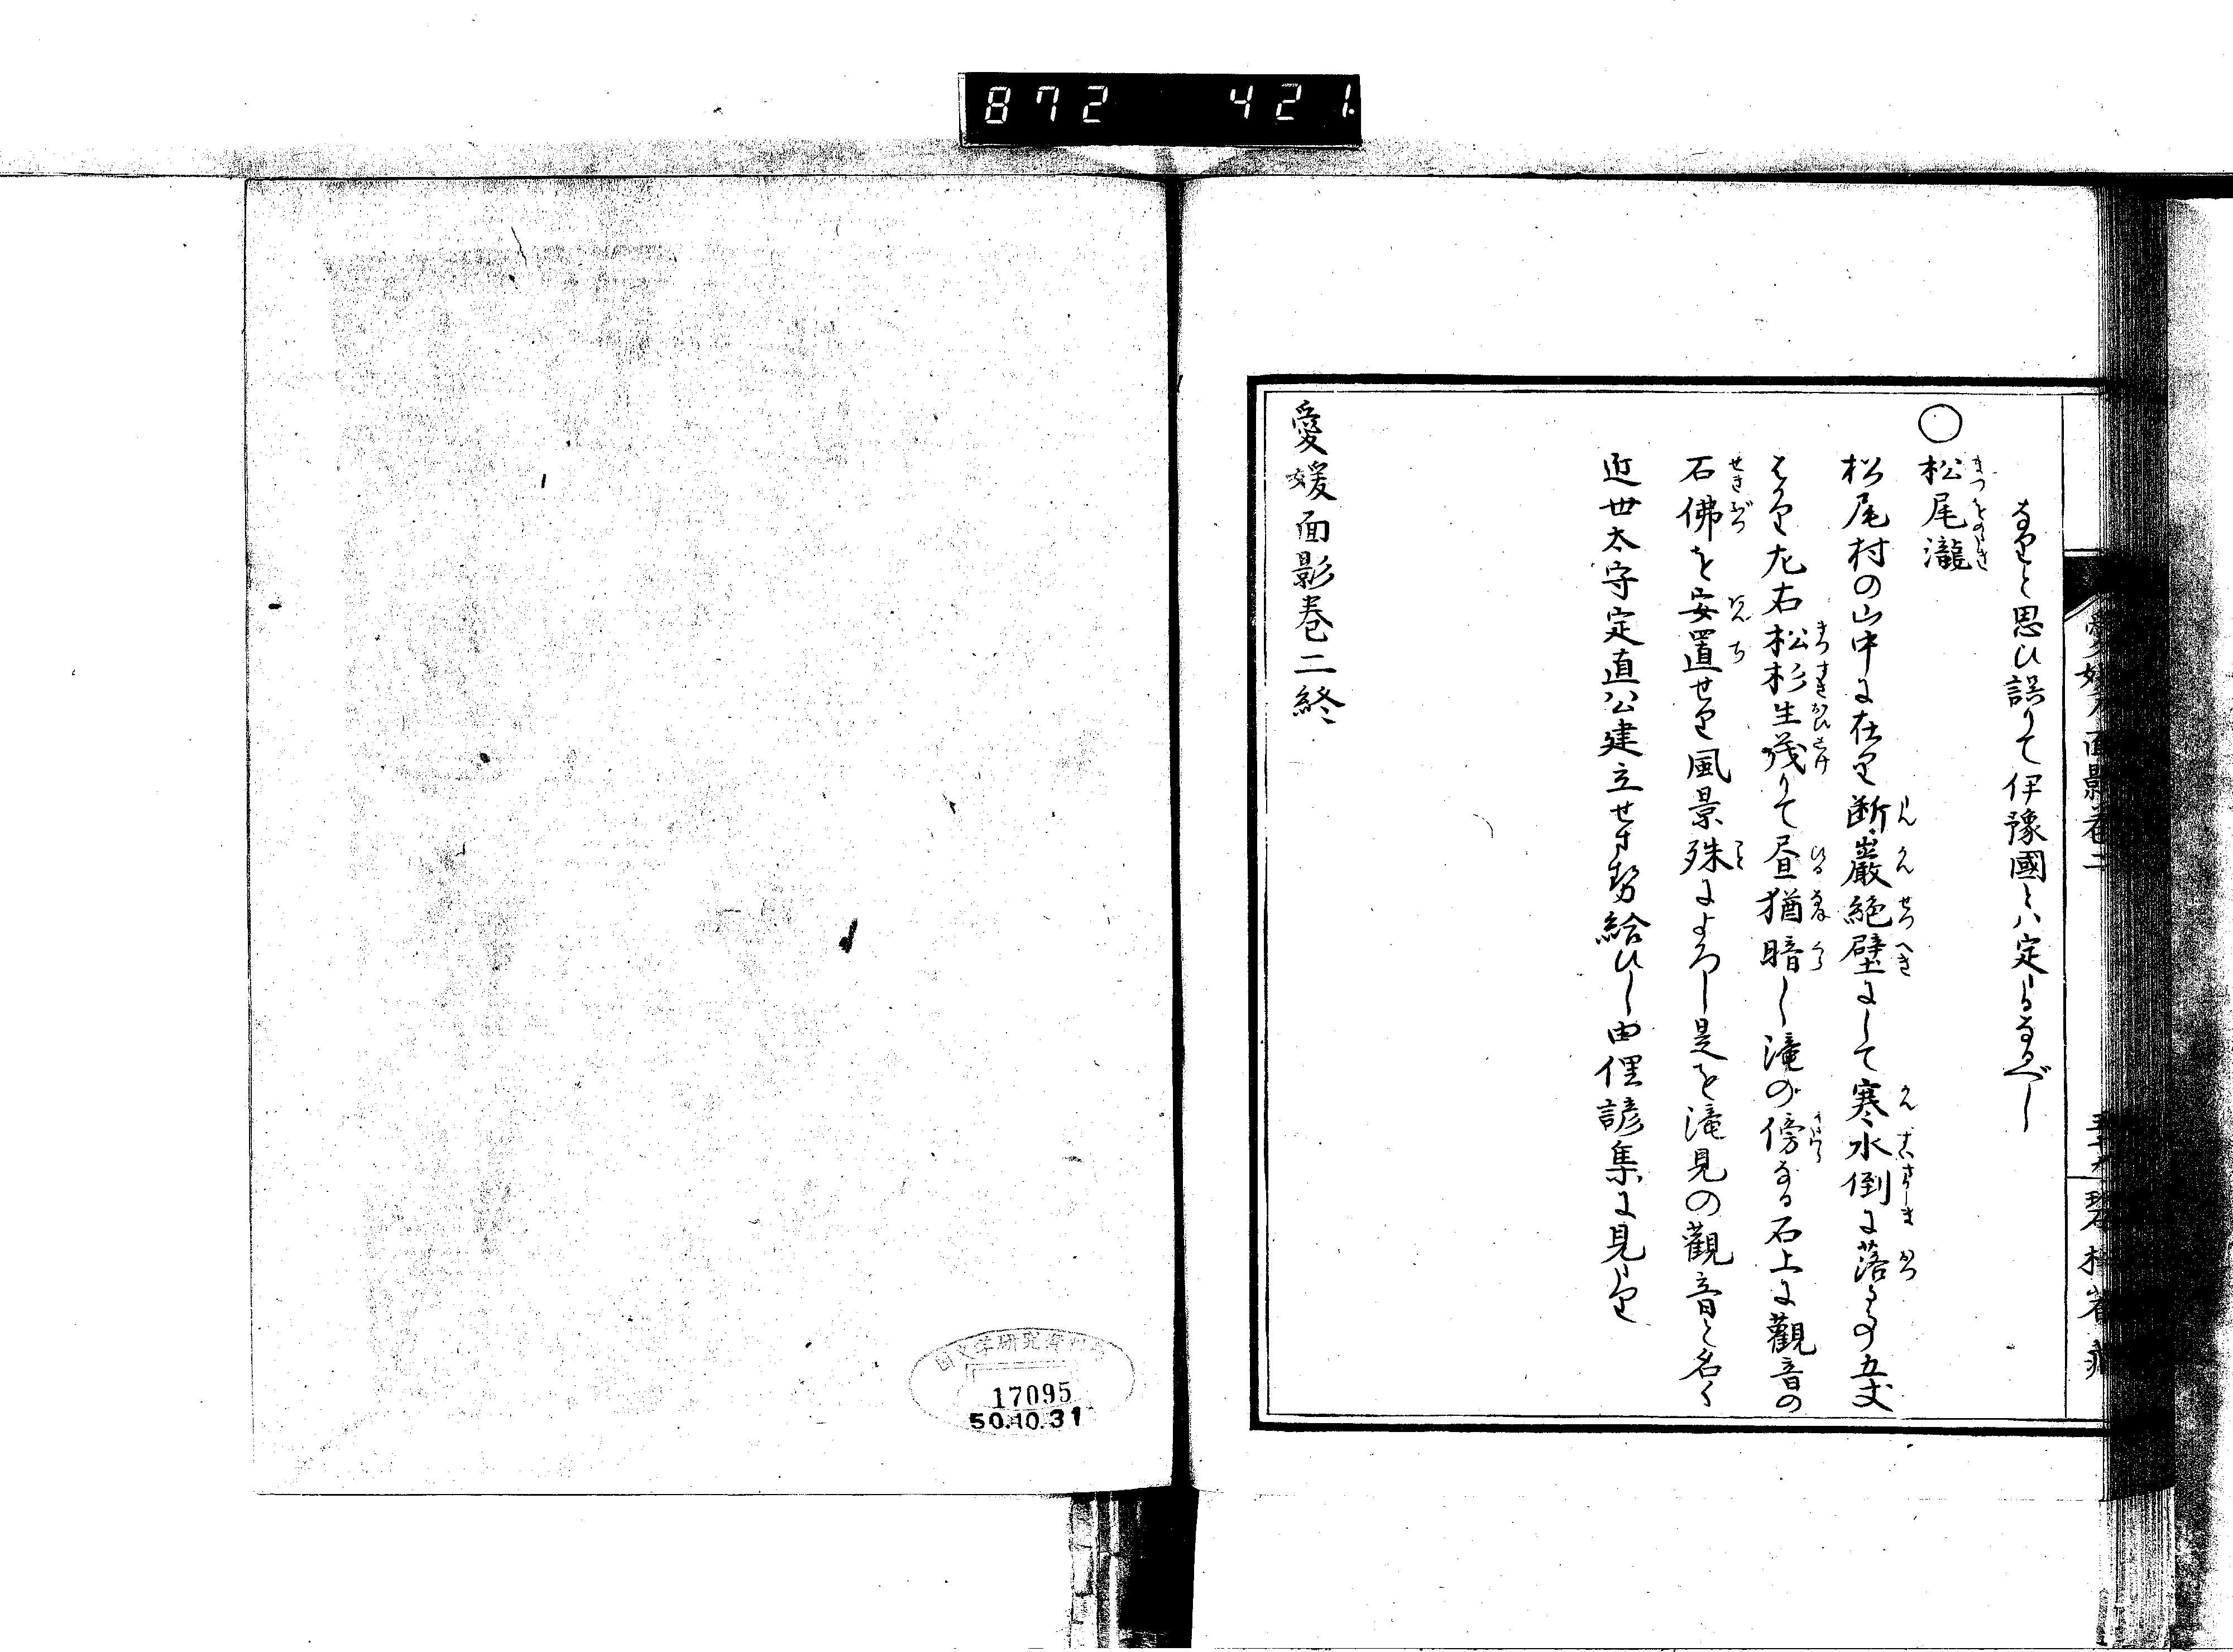 872 421
なりと思ひ誤りて伊豫國とハ定しるなるべし
○松尾瀧
松尾村の山中に在り断巖絶壁にして寒水倒に落る事五丈
はかり左右松杉生茂りて昼猶暗し滝の傍なる石上に觀音の
石佛を安置せり風景殊によろし是を滝見の觀音と名く
近世太守定直公建立せさせ給ひし由俚諺集に見えたり
愛媛面影巻二終
愛媛面影巻二
17095
50.10.31